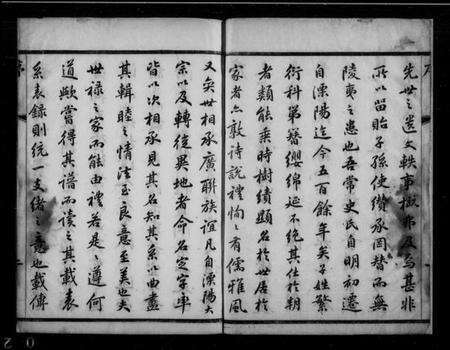 先世之遺文軼事概弗及焉甚非
所以留貽子孫使缵承罔替而無
陵夷之患也吾常史氏自明初遷
自溧陽迄今五百餘年矣子姓繁
衍科第簪纓綿延不絕其仕於朝
者類能乘時樹績顯名於世居於
家者亦敦詩說禮恂恂有儒雅風
又矣世相承廣聯族誼凡自溧陽大
宗以及轉徙異地者命名定字率
皆以次相承見其名知其系以曲盡
其輯睦之情法至良意至美也夫
世祿之家而能由禮若是之遵何
道歟嘗得其譜而讀之其載表
系表錄則統一支緒之意也載傳
序